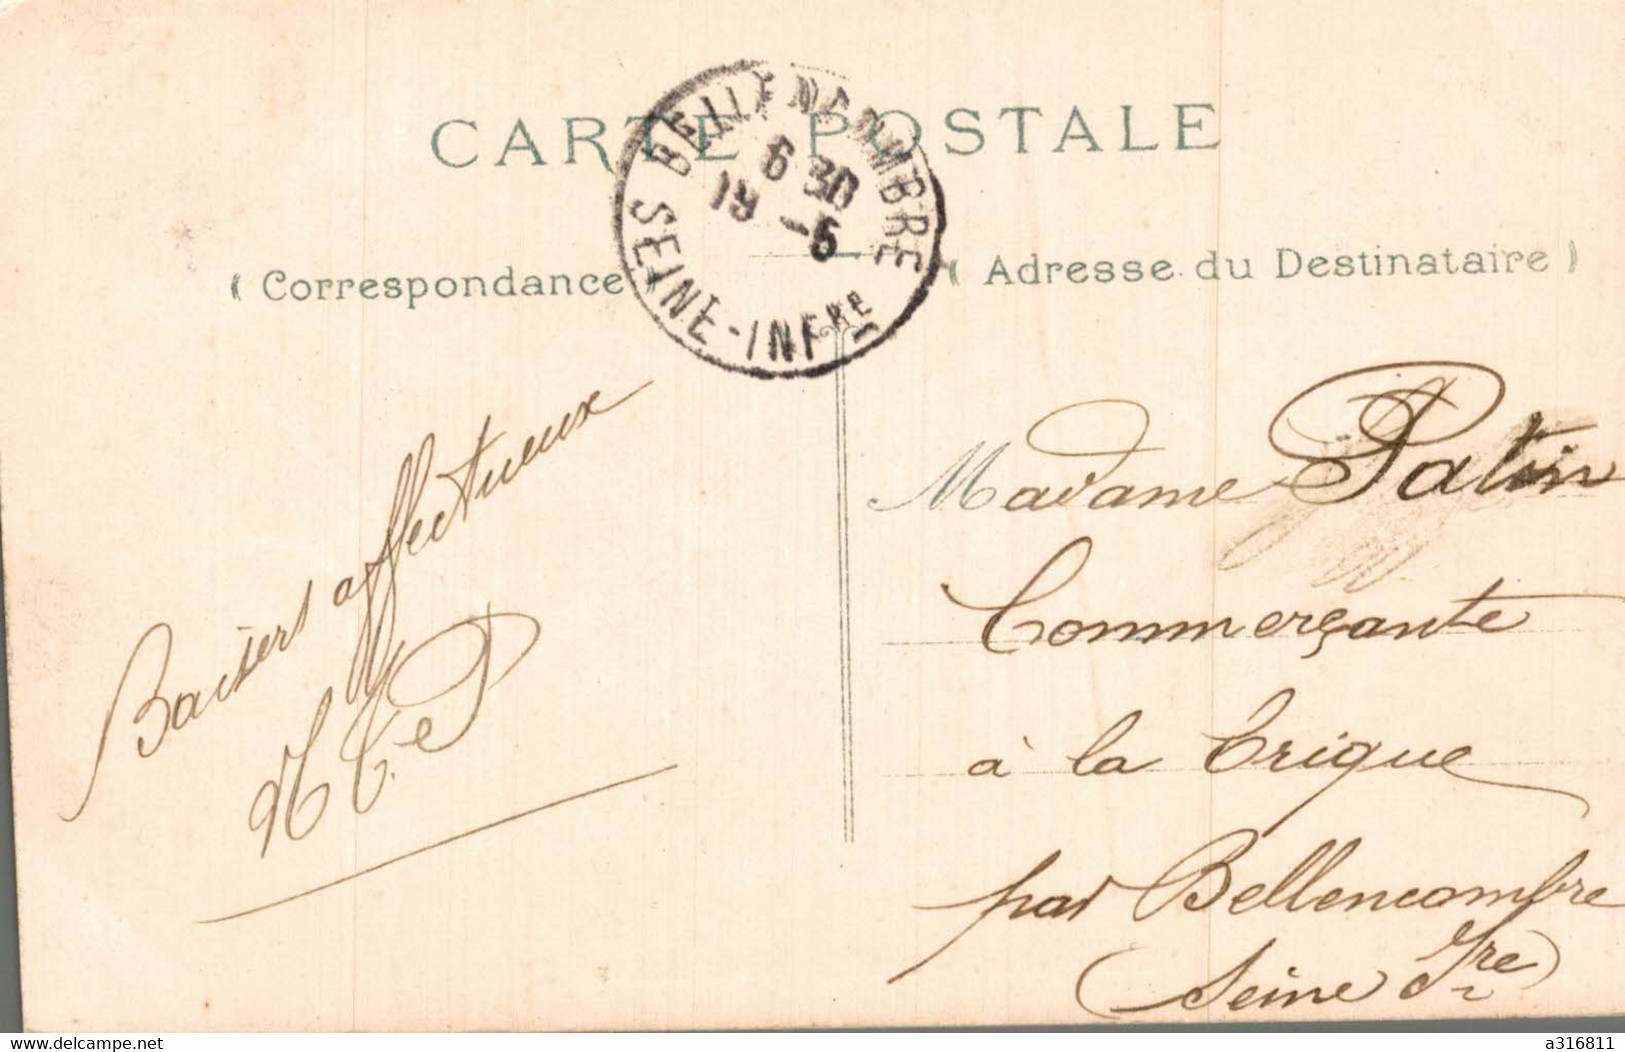 CARTE POSTALE
BELLENCOMBRE
6 30
19 -5
SEINE-INFRE
( Correspondance )
( Adresse du Destinataire )
Baisers affectueux
Madame Patin
Commerçante
à la Crique
par Bellencombre
(Seine Ire)
delcampe.net
a316811